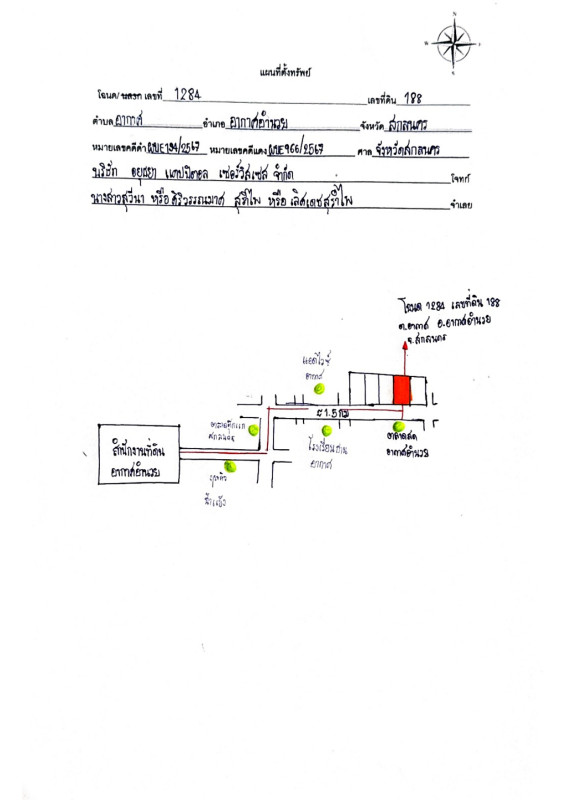 N
แผนที่ตั้งทรัพย์
โฉนด/น.ส.3ก เลขที่ 1284 เลขที่ดิน 188
ตำบล อากาศ อำเภอ อากาศอำนวย จังหวัด สกลนคร
หมายเลขคดีดำ ผบE194/2567 หมายเลขคดีแดง ผบE966/2567 ศาล จังหวัดสกลนคร
บริษัท อยุธยา แคปปิตอล เซอร์วิสเซส จำกัด โจทก์
นางสาวสุวีนา หรือ ศิริวรรณมาศ สุรำไพ หรือ เลิศเดชสุรำไพ จำเลย
โฉนด 1284 เลขที่ดิน 188
ต.อากาศ อ.อากาศอำนวย
จ.สกลนคร
แอดไวซ์
อากาศ
≈ 1.5 กม
สกลนคร
สำนักงานที่ดิน
อากาศอำนวย
โรงเรียนบ้าน
อากาศ
ตลาดสด
อากาศอำนวย